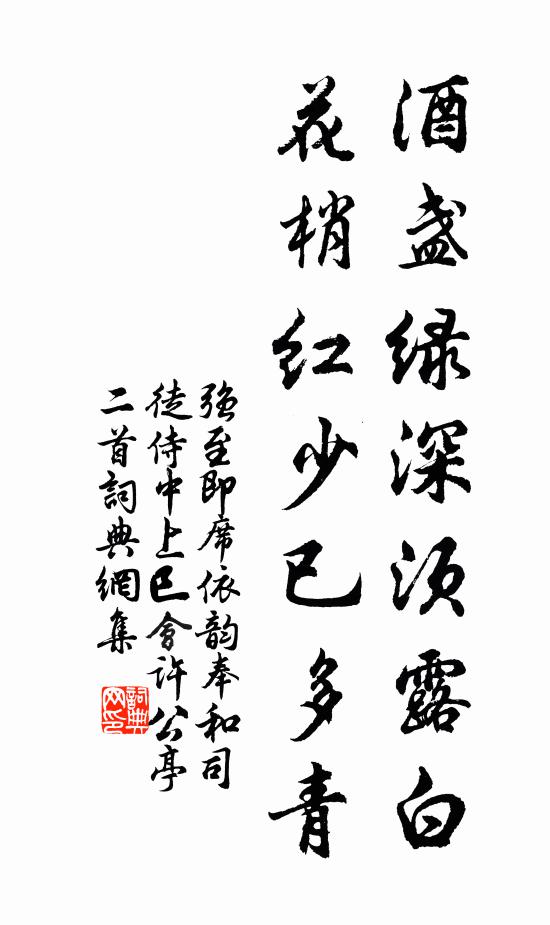 酒盏绿深须露白
花梢红少已多青
强至即席依韵奉和司
徒侍中上巳会许公亭
二首词典网集
词典
网印